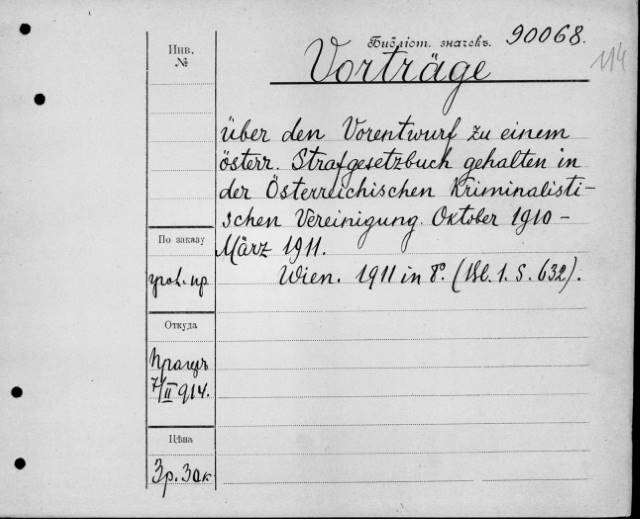 Библіот. значекъ. 90068.
114
Инв.
№
Vorträge
über den Vorentwurf zu einem
österr. Strafgesetzbuch gehalten in
der Österreichischen Kriminalisti-
schen Vereinigung. Oktober 1910 -
März 1911.
Wien. 1911 in 8°. (Bl. 1. S. 632).
По заказу
угол. пр
Откуда
Прагеръ
7/II 914.
Цѣна
3 р. 30 к